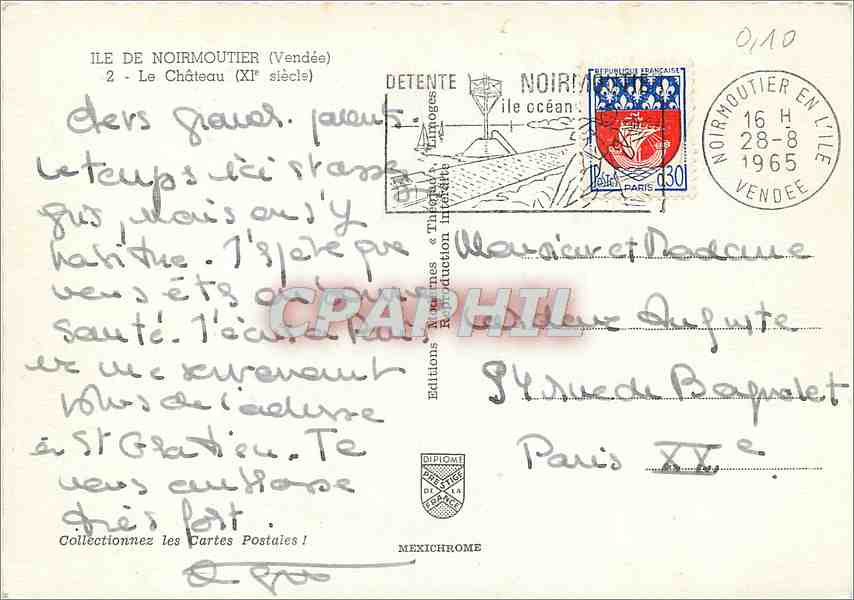 0,10
ILE DE NOIRMOUTIER (Vendée)
2 - Le Château (XIe siècle)
DETENTE NOIRMOUTIE
île océan
REPUBLIQUE FRANÇAISE
POSTES
0,30
PARIS
NOIRMOUTIER EN L'ILE
16 H
28-8
1965
VENDEE
chers grands parents.
Le temps ici est assez
gris, mais on s'y
habitue. J'espère que
vous êtes en bonne
santé. J'écris à Paris
ne me souvenant
plus de l'adresse
à St Gratien. Je
vous embrasse
très fort.
Monsieur et Madame
Auguste
94 rue de Bagnolet
Paris XXe
Editions Modernes « Théojac » Limoges
Reproduction interdite
CPAPHIL
DIPLOME
PRESTIGE
DE LA
FRANCE
Collectionnez les Cartes Postales !
MEXICHROME